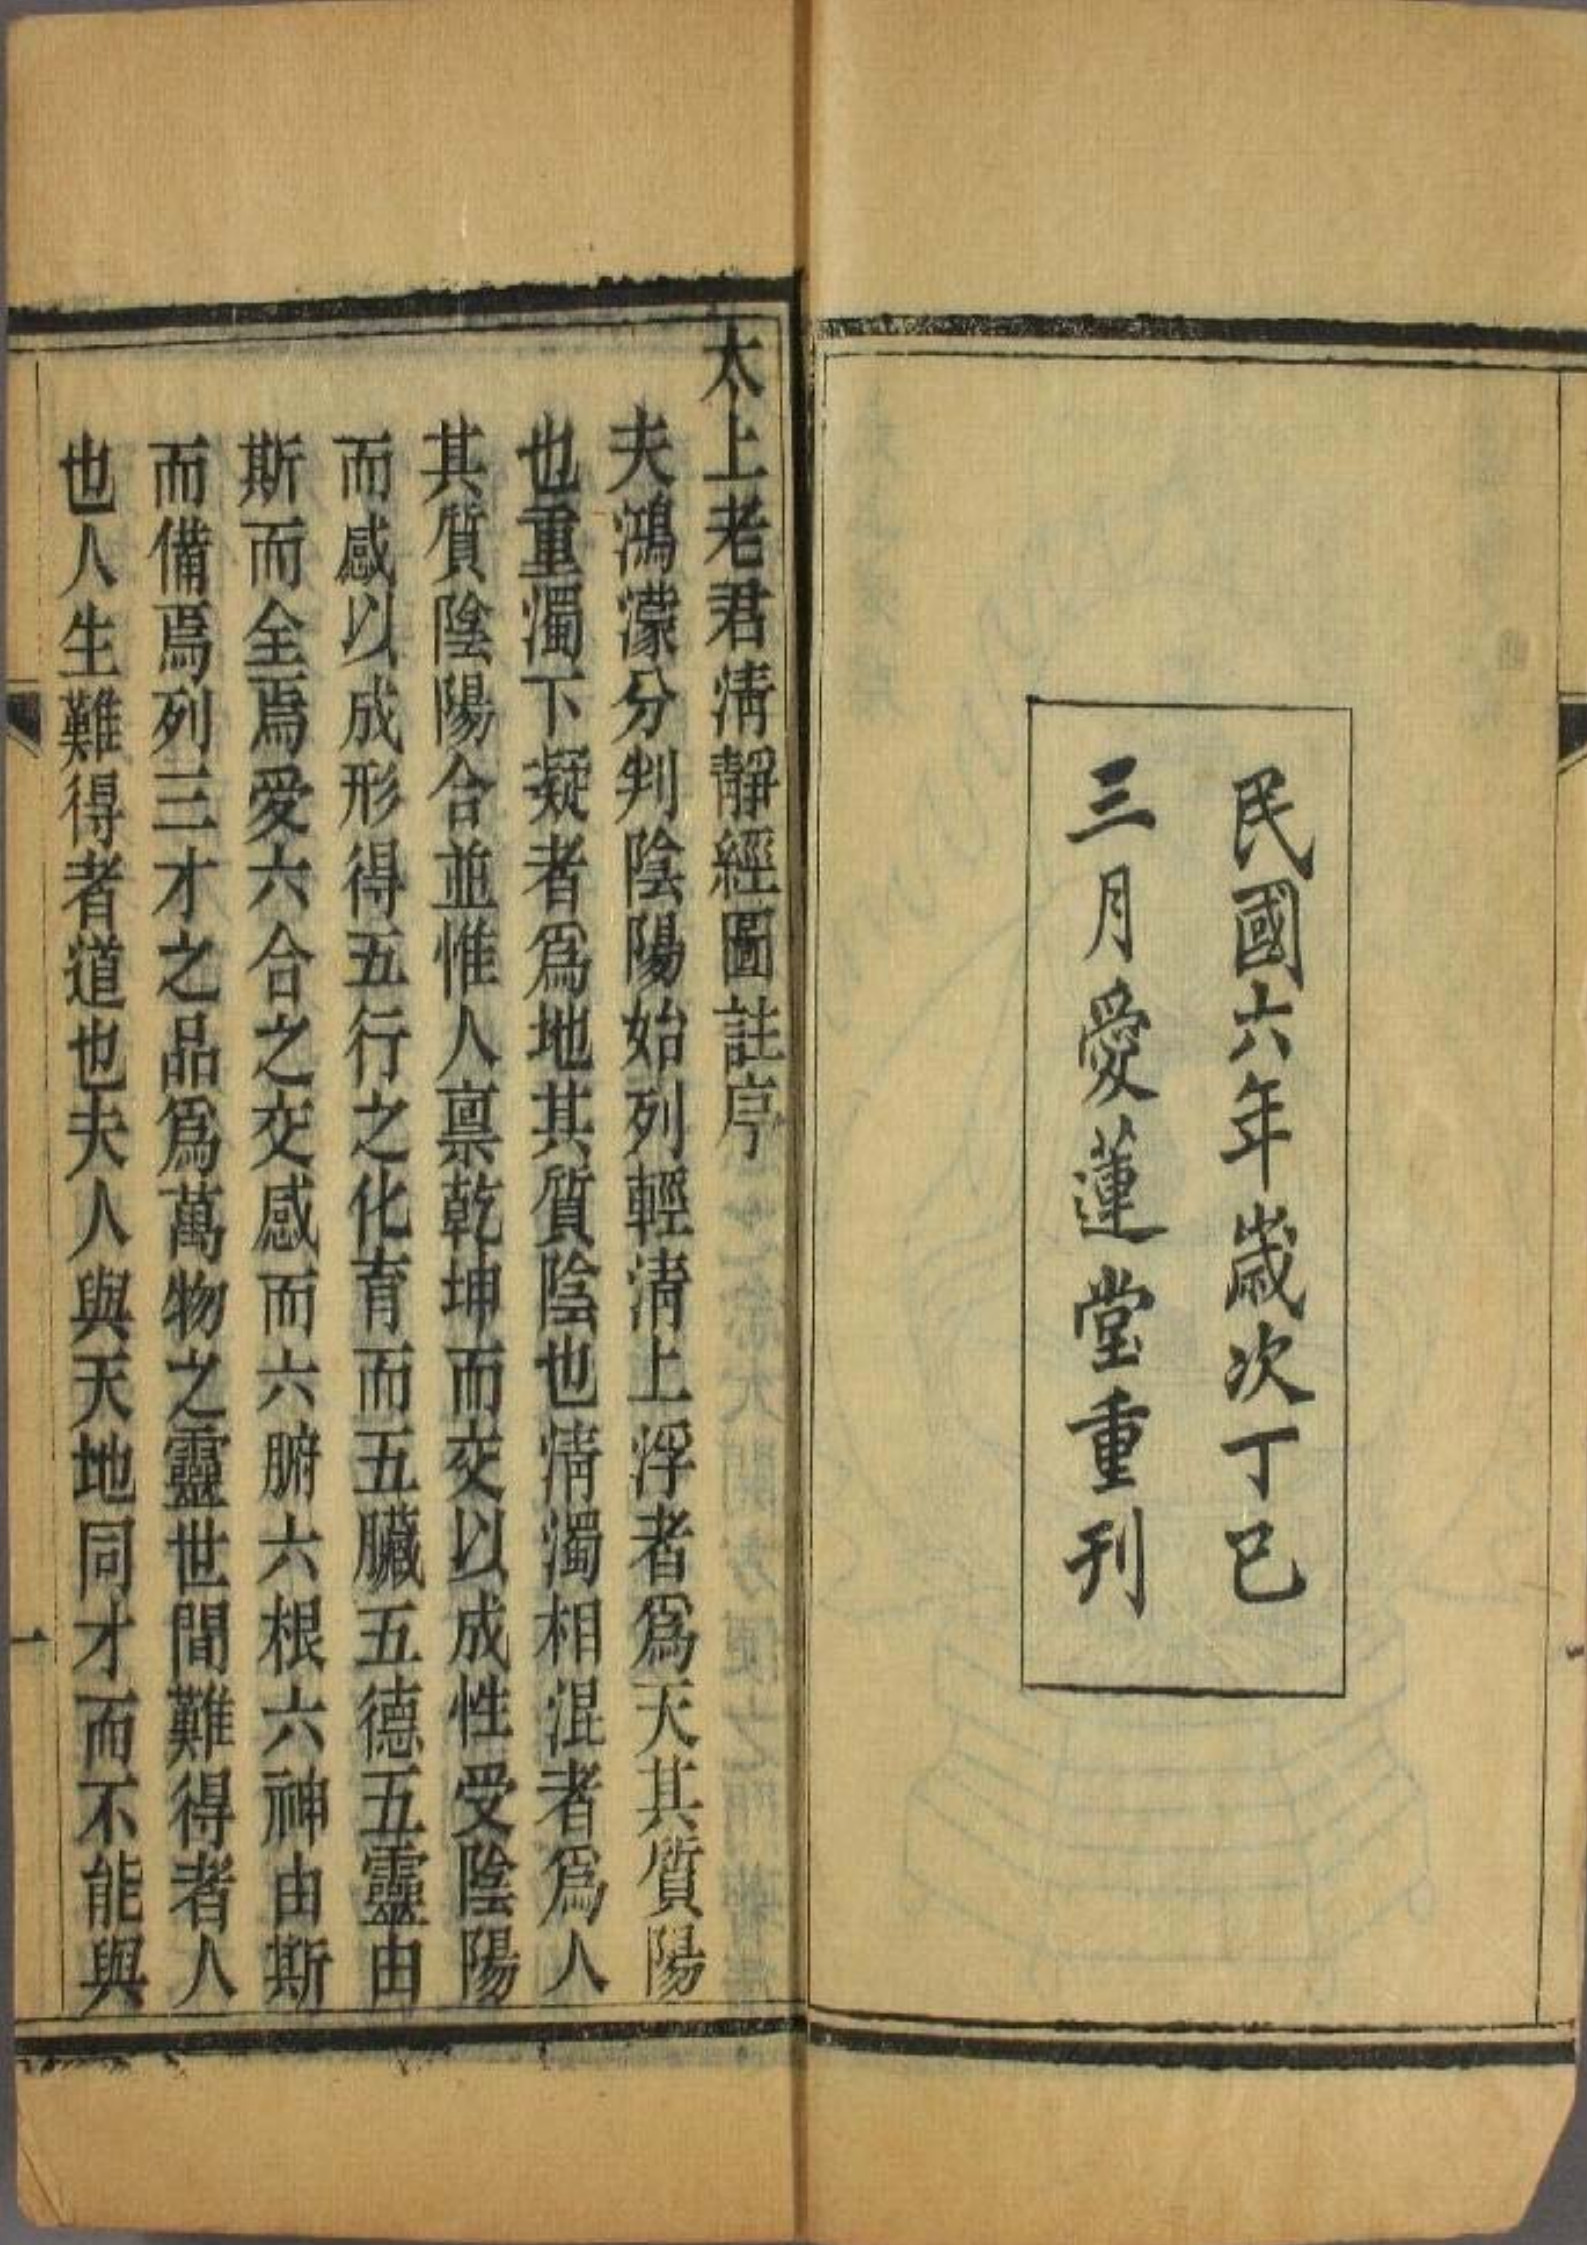 民國六年歲次丁巳
三月愛蓮堂重刊
太上老君淸靜經圖註序
夫鴻濛分判陰陽始列輕淸上浮者爲天其質陽
也重濁下凝者爲地其質陰也淸濁相混者爲人
其質陰陽合並惟人禀乾坤而交以成性受陰陽
而感以成形得五行之化育而五臟五德五靈由
斯而全焉愛六合之交感而六腑六根六神由斯
而備焉列三才之品爲萬物之靈世間難得者人
也人生難得者道也夫人與天地同才而不能與
一